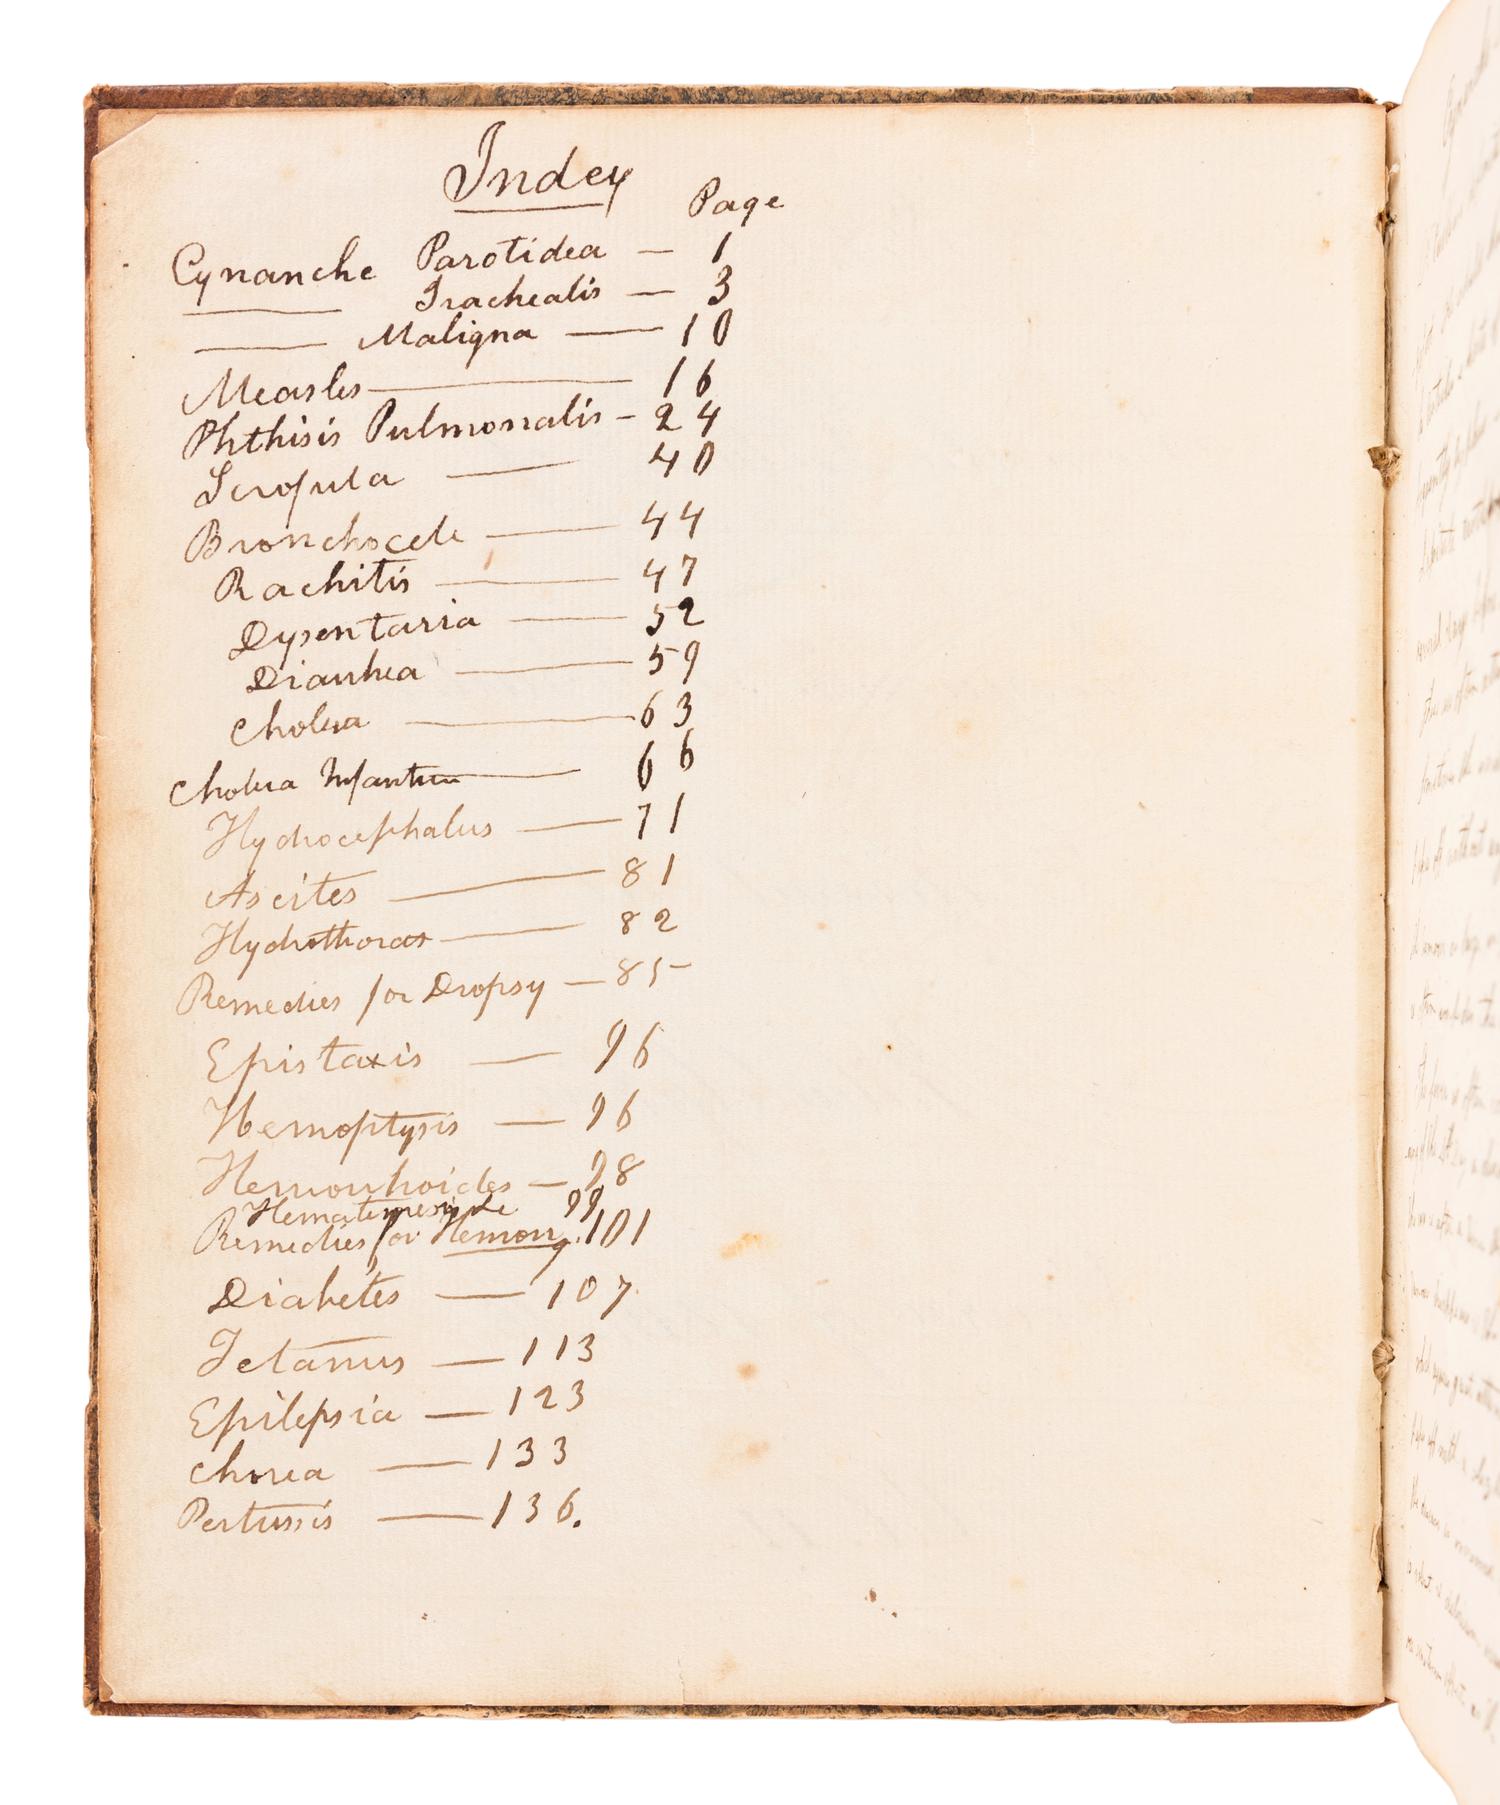 Index
Page
Cynanche Parotidea — 1
—— Trachealis — 3
—— Maligna — 10
Measles — 16
Phthisis Pulmonalis – 24
Scrofula — 40
Bronchocele — 44
Rachitis — 47
Dysentaria — 52
Diarrhea — 59
Cholera — 63
Cholera Infantum — 66
Hydrocephalus — 71
Ascites — 81
Hydrothorax — 82
Remedies for Dropsy — 85
Epistaxis — 96
Hemoptysis — 96
Hemorrhoides — 98
Hematemesis &c 99
Remedies for Hemorr,g. 101
Diabetes — 107
Tetanus — 113
Epilepsia — 123
Chorea — 133
Pertussis — 136.